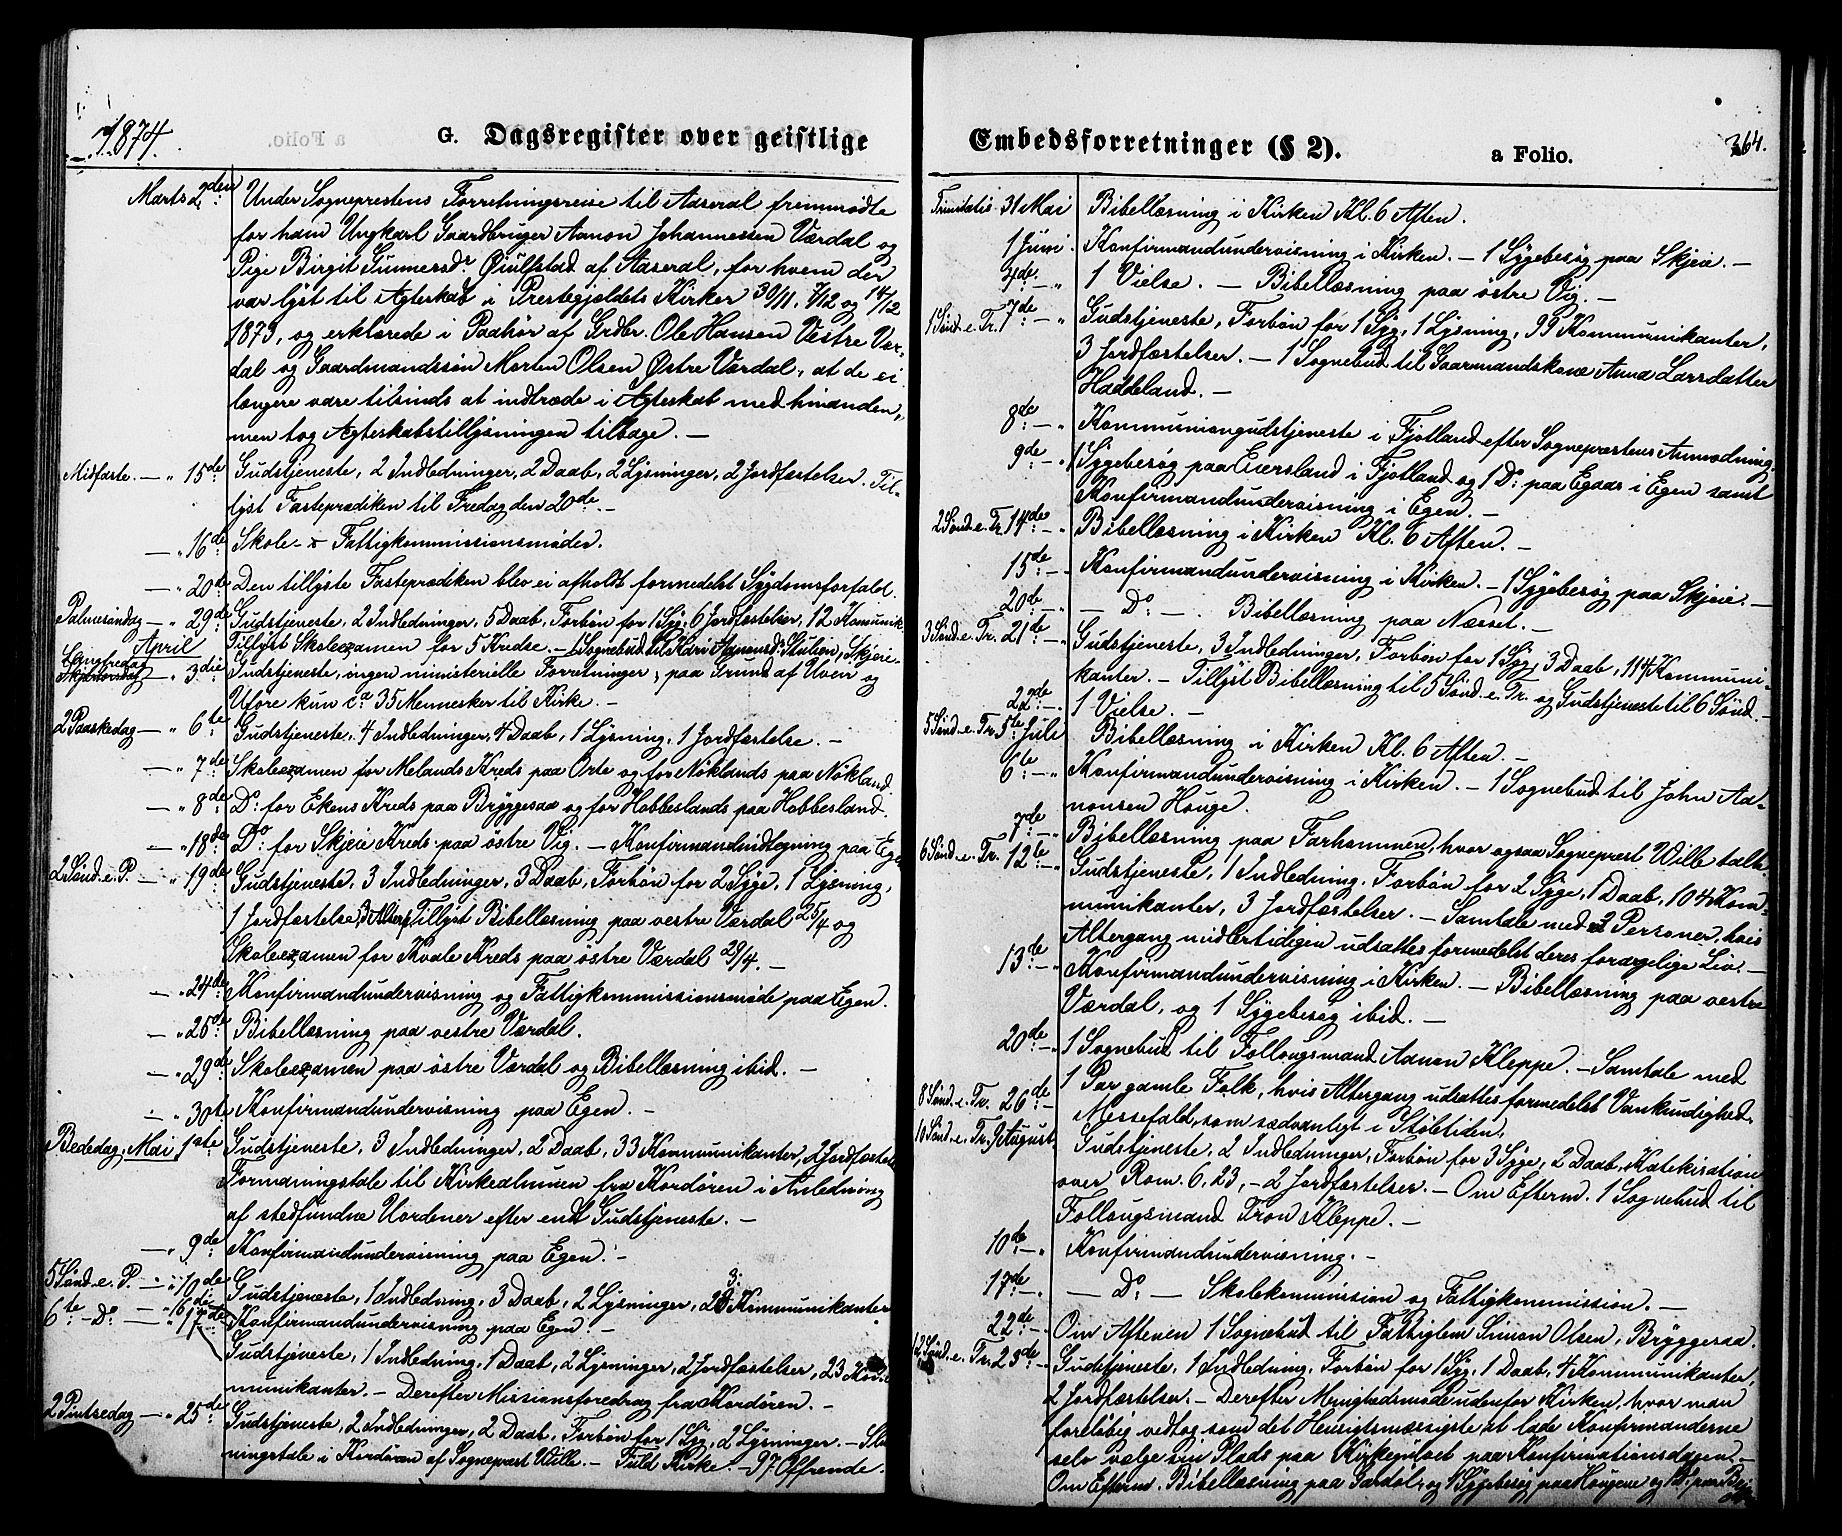 1874.
G. Dagsregister over geistlige
Marts 2den Under Sogneprestens Forretningsreise til Aaseral fremmødte
for ham Ungkarl Gaardbruger Aanon Johannessen Værdal og
Pige Birgit Gunnersdr Øiulfstad af Aaseral, for hvem der
var lyst til Ægteskab i Prestegjeldets Kirker 30/11. 7/12 og 14/12
1873, og erklærede i Paahør af Grdbr. Ole Hansen Vestre Vær-
dal og Gaardmandssøn Morten Olsen Østre Værdal, at de ei
længere vare tilsinds at indtræde i Ægteskab med hinanden,
men tog Ægteskabstillysningen tilbage. —
Midfaste. — " 15de Gudstjeneste, 2 Indledninger, 2 Daab, 2 Lysninger, 2 Jordfæstelser. Til-
lyst Fasteprædiken til Fredag den 20de. —
— " 16de Skole- & Fattigkommissionsmøder.
— " 20de Den tillyste Fasteprædiken blev ei afholdt formedelst Sygdomsforfald.
Palmesøndag — " 29de Gudstjeneste, 2 Indledninger, 5 Daab, Forbøn for 1 Syg, 6 Jordfæstelser, 12 Komunik.
Tillyst Skoleexamen for 5 Kredse. — 1 Sognebud til Kari Aanonsd. Stulien, Skjeie
April
Langfredag
Skjærtorsdag — " 3die Gudstjeneste, ingen ministerielle Forretninger, paa Grund af Uveir og
Uføre kun ca 35 Mennesker til Kirke. —
2 Paaskedag — " 6te Gudstjeneste, 4 Indledninger, 4 Daab, 1 Lysning, 1 Jordfæstelse. —
— " 7de Skoleexamen for Melands Kreds paa Orte og for Nøklands paa Nøkland.
— " 8de Do: for Ekens Kreds paa Bryggesaa og for Hobbeslands paa Hobbesland.
— " 18de Do for Skjeie Kreds paa østre Vig. — Konfirmandudlægning paa Egen
2 Sønd. e. P. — " 19de Gudstjeneste, 3 Indledninger, 3 Daab, Forbøn for 2 Syge, 1 Lysning,
1 Jordfæstelse, 3 Alterg. Tillyst Bibellæsning paa vestre Værdal 25/4 og
Skoleexamen for Kvale Kreds paa østre Værdal 29/4. —
— " 24de Konfirmandundervisning og Fattigkommissionsmøde paa Egen.
— " 25de Bibellæsning paa vestre Værdal.
— " 29de Skoleexamen paa østre Værdal og Bibellæsning ibid. —
— " 30te Konfirmandundervisning paa Egen. —
Bededag, Mai 1ste Gudstjeneste, 3 Indledninger, 2 Daab, 33 Kommunikanter, 2 Jordfæstels
Formaningstale til Kirkealmuen fra Kordøren i Anledning
af stedfundne Uordener efter endt Gudstjeneste. —
— " 9de Konfirmandundervisning paa Egen. —
5 Sønd. e. P. — " 10de Gudstjeneste, 1 Indledning, 3 Daab, 2 Lysninger, 23 Kommunikanter
— " 16de Konfirmandundervisning paa Egen. —
6te — Do — " 17de Gudstjeneste, 1 Indledning, 1 Daab, 2 Lysninger, 2 Jordfæstelser, 23 Kom-
munikanter. — Derefter Missionsforedrag fra Kordøren. —
2 Pintsedag — " 25de Gudstjeneste, 2 Indledninger, 2 Daab, Forbøn for 1 Syg, 2 Lysninger. — Slut-
ningstale i Kordøren af Sogneprest Wille. — Fuld Kirke. — 97 Offrende.
Embedsforretninger (§ 2).
a Folio.
364.
Trinitatis 31 Mai Bibellæsning i Kirken Kl. 6 Aften.
1 Juni. Konfirmandundervisning i Kirken. — 1 Sygebesøg paa Skjeie. —
3de — " 1 Vielse. — Bibellæsning paa østre Vig. —
1 Sønd. e. Tr. 7de — " Gudstjeneste, Forbøn for 1 Syg, 1 Lysning, 99 Kommunikanter,
3 Jordfæstelser. — 1 Sognebud til Gaarmandskone Anna Larsdatter
Haddeland. —
8de — " Kommuniongudstjeneste i Fjotland efter Sogneprestens Anmodning.
9de — " 1 Sygebesøg paa Eiersland i Fjotland og 1 Do: paa Egaas i Egen samt
Konfirmandundervisning i Egen. —
2 Sønd. e. Tr. 14de — " Bibellæsning i Kirken Kl. 6 Aften. —
15de — " Konfirmandundervisning i Kirken. — 1 Sygebesøg paa Skjeie. —
20de — " — Do: — . Bibellæsning paa Næsset. —
3 Sønd. e. Tr. 21de — " Gudstjeneste, 3 Indledninger, Forbøn for 1 Syg, 3 Daab, 114 Kommuni-
kanter. — Tillyst Bibellæsning til 5 Sønd. e. Tr. og Gudstjeneste til 6 Sønd. —
22de — " 1 Vielse. —
5 Sønd. e. Tr. 5te Juli Bibellæsning i Kirken Kl. 6 Aften. —
6te — " Konfirmandundervisning i Kirken. — 1 Sognebud til John Aa-
nonsen Houge.
7de — " Bibellæsning paa Farhommen, hvor ogsaa Sogneprest Wille talte.
6 Sønd. e. Tr. 12te — " Gudstjeneste, 1 Indledning, Forbøn for 2 Syge, 1 Daab, 104 Kom-
munikanter, 3 Jordfæstelser. — Samtale med 2 Personer, hvis
Altergang midlertidigen udsattes formedelst deres forargelige Liv. —
13de — " Konfirmandundervisning i Kirken. — Bibellæsning paa vestre
Værdal, og 1 Sygebesøg ibid. —
20de — " 1 Sognebud til Follougsmand Aanon Kleppe. — Samtale med
1 Par gamle Folk, hvis Altergang udsattes formedelst Vankundighed.
8 Sønd. e. Tr. 26de — Messefald, som sædvanligt i Støletiden.
10 Sønd. e. Tr. 9 August. Gudstjeneste, 2 Indledninger, Forbøn for 3 Syge, 2 Daab, Katekisation
over Rom. 6, 23, — 2 Jordfæstelser. — Om Efterm. 1 Sognebud til
Follougsmand Tron Kleppe. —
10de — " Konfirmandundervisning. —
17de — " — Do: — Skolekommission og Fattigkommission. —
22de — " Om Aftenen 1 Sognebud til Fattiglem Simon Olsen, Bryggesaa.
12 Sønd. e. Tr. 23de — Gudstjeneste, 1 Indledning, Forbøn for 1 Syg, 1 Daab, 4 Kommunikanter,
2 Jordfæstelser. — Derefter Menighedsmøde udenfor Kirken, hvor man
foreløbig vedtog som det Hensigtsmæssigste at lade Konfirmanderne
selv vælge sin Plads paa Kirkegulvet paa Konfirmationsdagen. —
Om Efterm. Bibellæsning paa Gardøl, og 1 Sygebesøg paa Hougene og 1 Do: paa